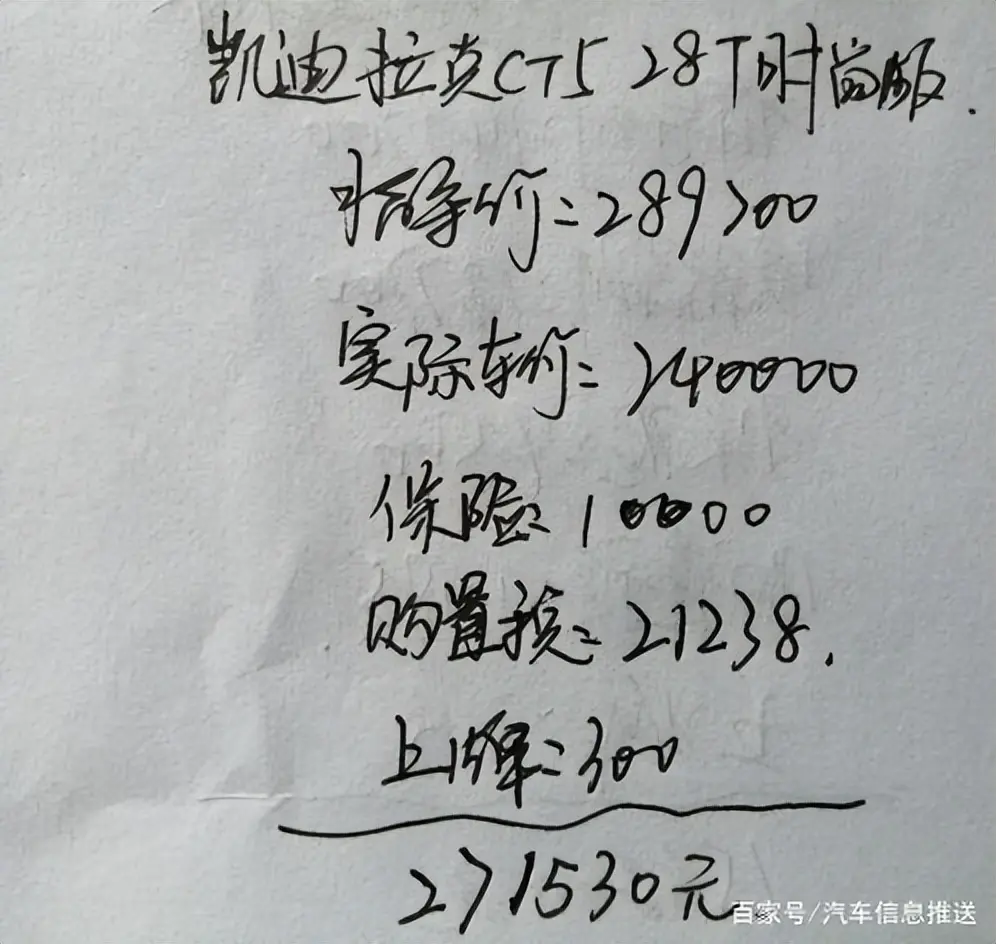 凯迪拉克CT5 28T时尚版.
指导价=289700
实际车价=240000
保险=10000
购置税=21238.
上牌=300
271530元
百家号/汽车信息推送